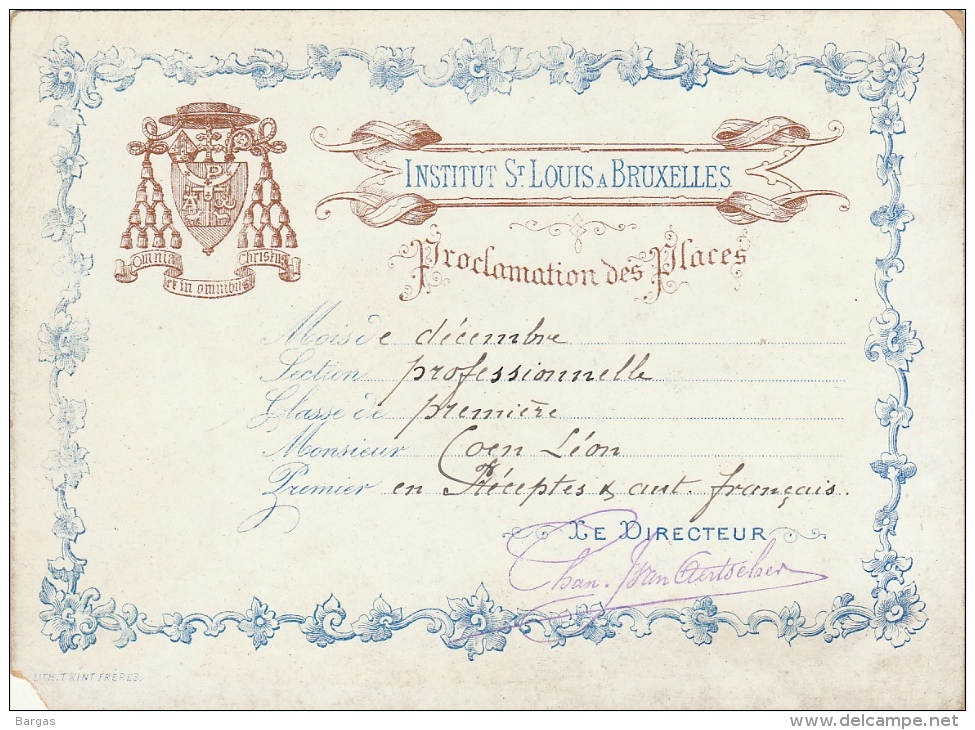 INSTITUT ST LOUIS A BRUXELLES
Omnia Christus
et in omnibus
Proclamation des Places
Mois de décembre
Section professionnelle
Classe de première
Monsieur Coen Léon
Premier en Préceptes & aut. français.
LE DIRECTEUR
Chan. Van Aertselaer
LITH. T'KINT FRÈRES.
Bargas
www.delcampe.net